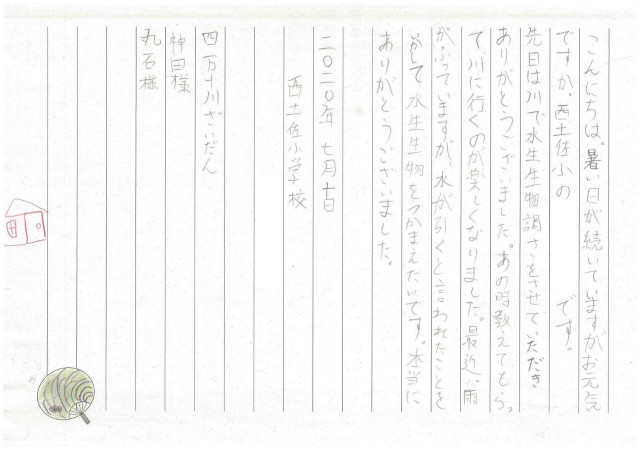 こんにちは。暑い日が続いていますがお元気
ですか。西土佐小の です。
先日は川で水生生物調さをさせていただき
ありがとうございました。あの時教えてもらっ
て、川に行くのが楽しくなりました。最近、雨
がふっていますが、水が引くと言われたことを
いかして、水生生物をつかまえたいです。本当に
ありがとうございました。
二〇二〇年 七月十日
西土佐小学校
四万十川ざいだん
神田様
丸石様